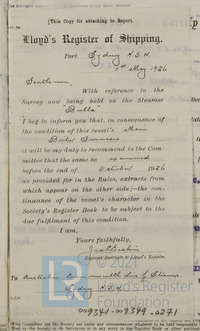 [This Copy for attaching to Report.
Lloyd's Register of Shipping.
Port Sydney N.S.W.
May 1926
Gentlemen,
With reference to the
Survey now being held on the Steamer
"Bulla"
I beg to inform you that, in consequence of
the condition of this vessel's Main
Boiler Furnaces
it will be my duty to recommend to the Com-
mittee that the same be examined
before the end of October 1926
as provided for in the Rules, extracts from
which appear on the other side;—the con-
tinuance of the vessel's character in the
Society's Register Book to be subject to the
due fulfilment of this condition.
I am,
Yours faithfully,
Surveyor to Lloyd's Register.
To Australian Commonwealth Line of Steamers
Sydney N.S.W.
© 2021
Lloyd's Register
Foundation
009374-009379-0271